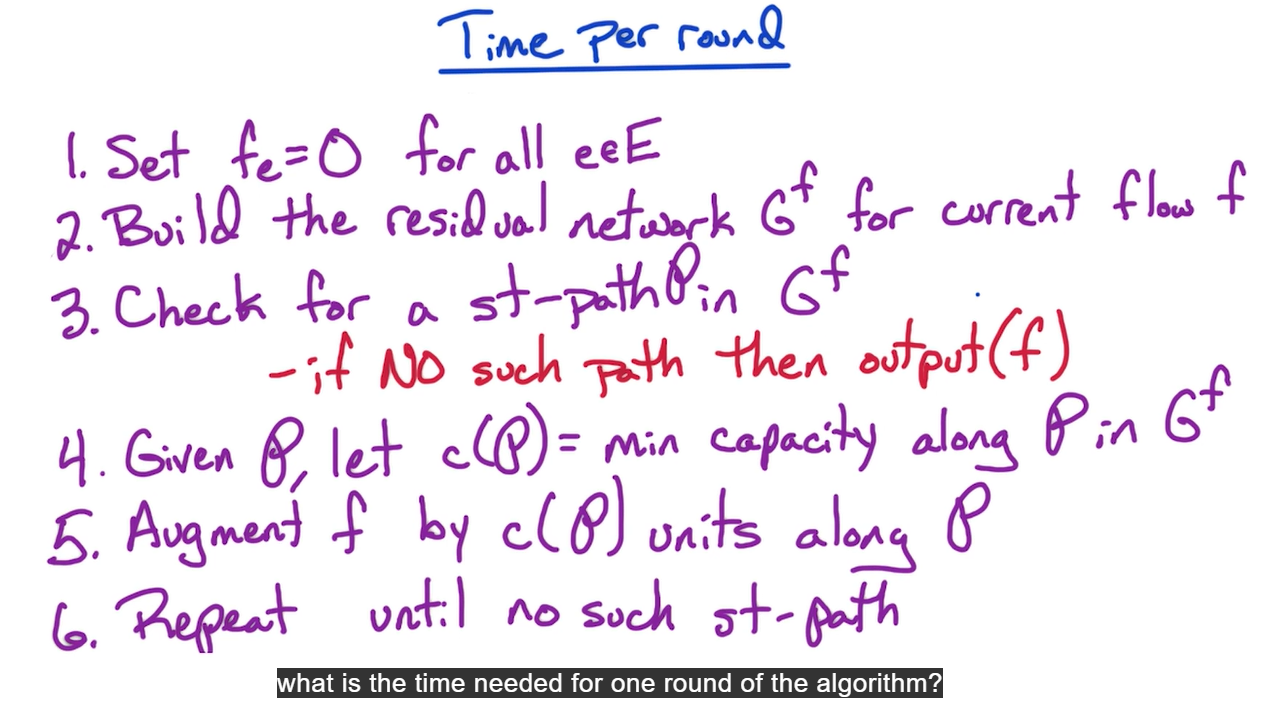 Time per round
1. Set fe=0 for all e∈E
2. Build the residual network G^f for current flow f
3. Check for a st-path P in G^f
- if NO such path then output(f)
4. Given P, let c(P)= min capacity along P in G^f
5. Augment f by c(P) units along P
6. Repeat until no such st-path
what is the time needed for one round of the algorithm?